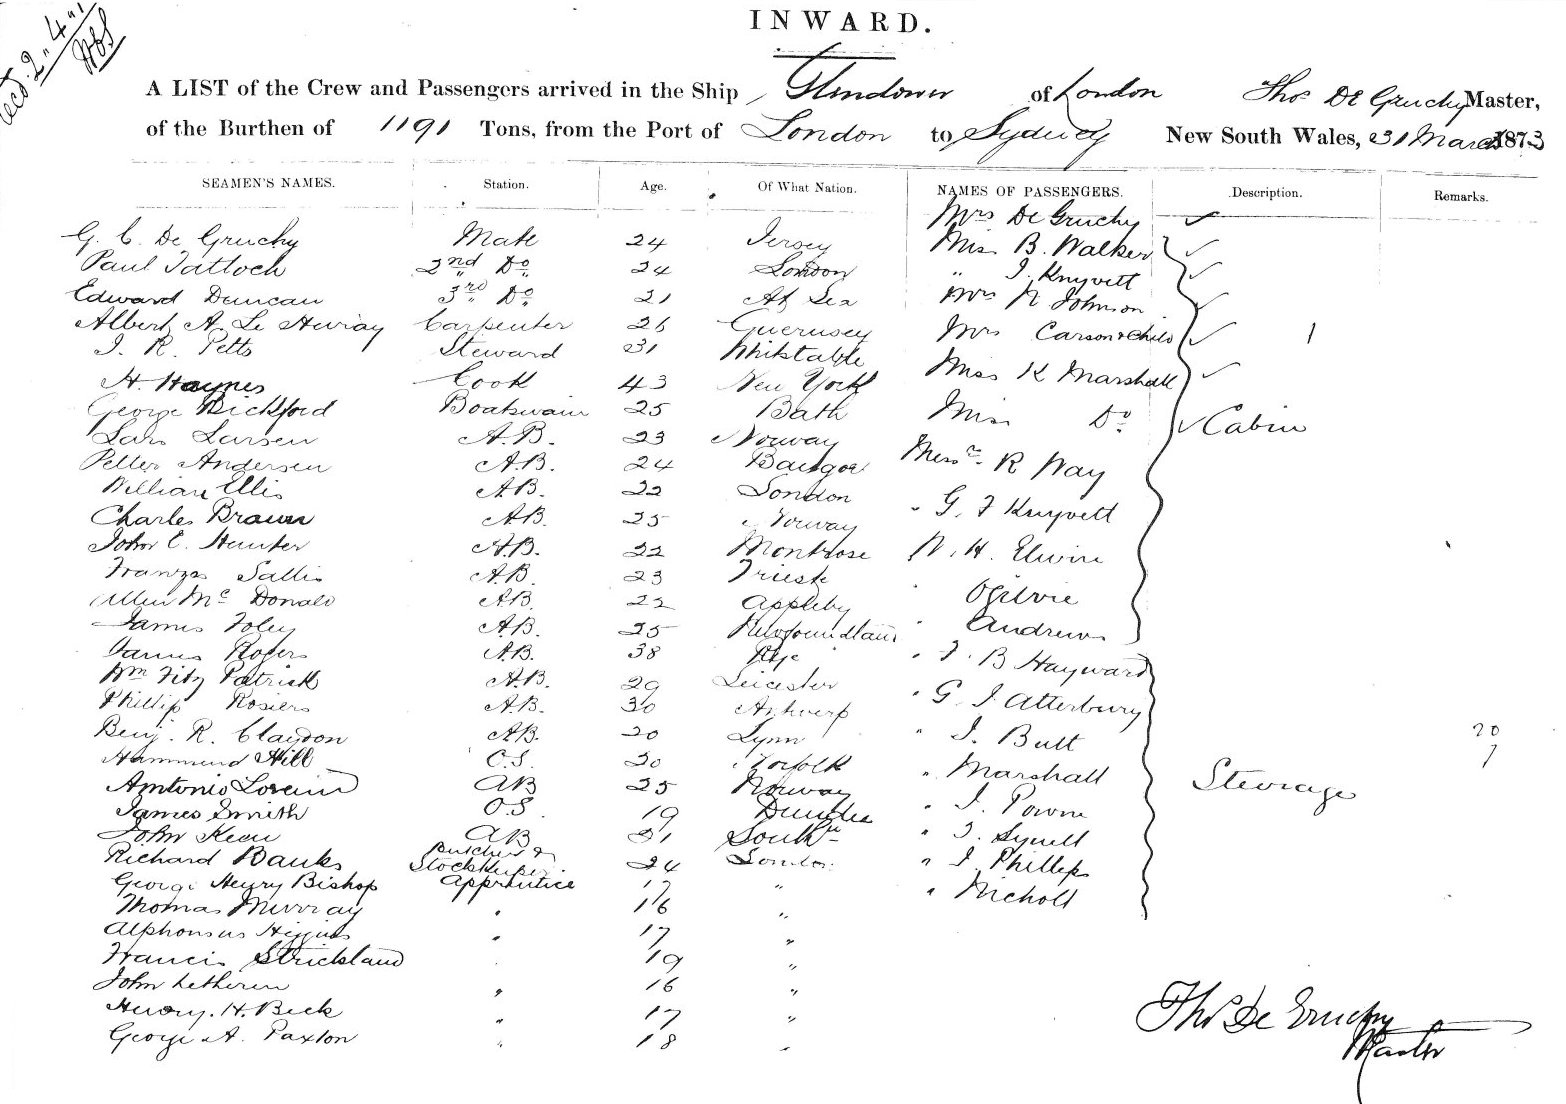 recd. 2 "4"
INWARD.
A LIST of the Crew and Passengers arrived in the Ship Glendower of London Thos De Gruchy Master,
of the Burthen of 1191 Tons, from the Port of London to Sydney New South Wales, 31 March 1873
SEAMEN'S NAMES. Station. Age. Of What Nation. NAMES OF PASSENGERS. Description. Remarks.
Mrs De Gruchy
G. C. De Gruchy Mate 24 Jersey Miss B. Walker
Paul Tatlock 2nd Do 24 London " J. Knyvett
Edward Duncan 3rd Do 21 At Sea Mrs N Johnson
Albert A. Le Huray Carpenter 26 Guernsey Mrs Carson & Child 1
J. R. Petts Steward 31 Whitstable
H. Haynes Cook 43 New York Miss K Marshall
George Bickford Boatswain 25 Bath Miss Do Cabin
Lars Larsen A.B. 23 Norway
Petter Andersen A.B. 24 Messrs R Way
William Ellis A.B. 22 London
Charles Brown A.B. 25 Norway " G. F Knyvett
John C. Hunter A.B. 22 Montrose W. H. Elwin
Sallis A.B. 23 Trieste
Allen Mc Donald A.B. 22 Appleby " Ogilvie
James Foley A.B. 25 Newfoundland " Andrews
James Rogers A.B. 38 Rye " J. B Hayward
Wm Fitz Patrick A.B. 29 Leicester
Phillip Rosiers A.B. 30 Antwerp " G. J Atterbury
Benj. R. Claydon A.B. 20 Lynn " J. Butt 20
Hammond Hill O.S. 20 Norfolk 1
Antonio AB 25 Norway " Marshall Steerage
James Smith O.S. 19 Dundee " J. Powne
John Keen AB 21 Southn " J.
Richard Banks Butcher & Stockkeeper 24 London " J. Phillips
George Henry Bishop Apprentice 17 " " Nicholl
Thomas Murray " 16 "
Alphonsus Higgins " 17 "
Francis Strickland 19 "
John Letheren " 16 "
Henry. H. Beck " 17 "
George A. Paxton " 18 "
Thos De Gruchy
Master